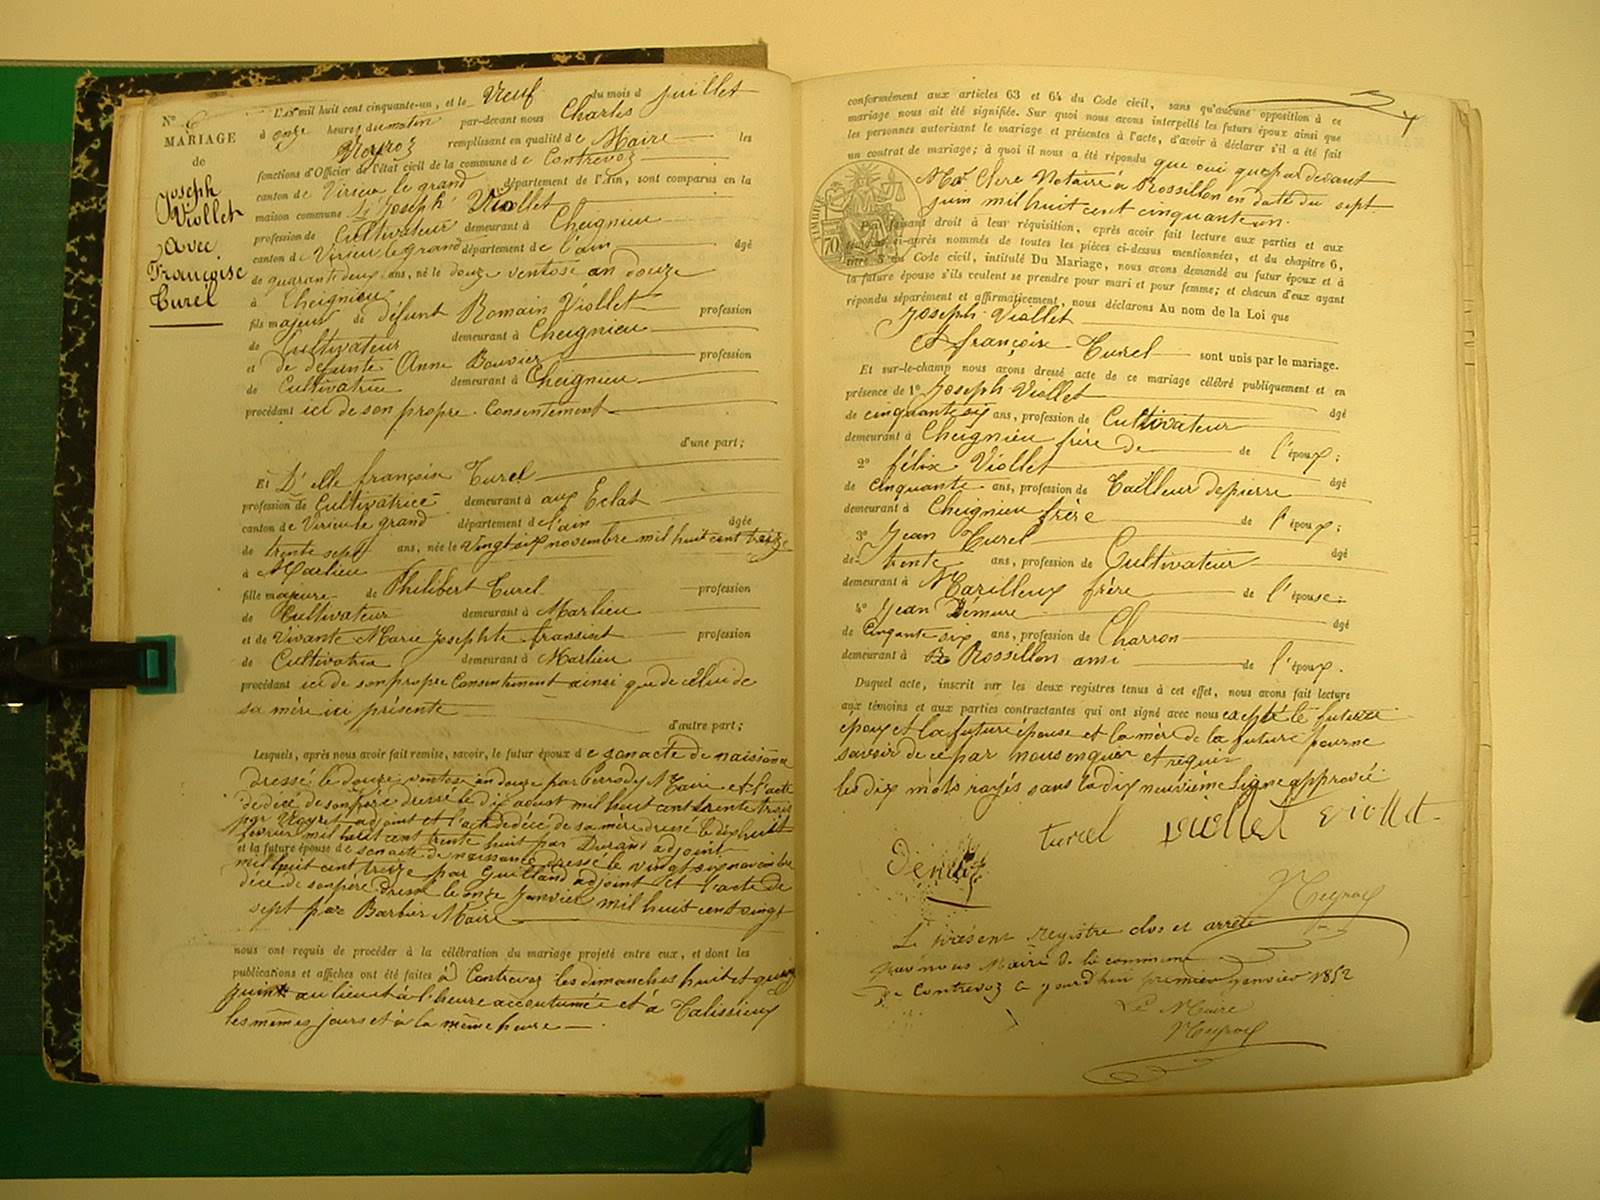 N° 6
MARIAGE
de
Joseph
Viollet
Avec
Françoise
Turel
L'an mil huit cent cinquante-un, et le Neuf du mois d juillet
à onze heures du matin par-devant nous Charles
Neyroz remplissant en qualité de Maire les
fonctions d'Officier de l'état civil de la commune de Contrevoz
canton de Virieu le grand département de l'Ain, sont comparus en la
maison commune Joseph Viollet
profession de Cultivateur demeurant à Cheignieu
canton d Virieu le grand département de l'ain âgé
de quarante deux ans, né le douze ventose an douze
à Cheignieu
fils majeur de défunt Romain Viollet profession
de Cultivateur demeurant à Cheignieu
et de défunte Anne Bouvier profession
de Cultivatrice demeurant à Cheignieu
procédant ici de son propre Consentement
d'une part;
Et D'elle françoise Turel
profession de Cultivatrice demeurant à aux Eclat
canton de Virieu le grand département de l'ain âgée
de trente sept ans, née le vingt six novembre mil huit cent treize
à Marlieu
fille majeure de Philibert Turel profession
de Cultivateur demeurant à Marlieu
et de Vivante Marie Josephte profession
de Cultivatrice demeurant à Marlieu
procédant ici de son propre Consentement ainsi que de celui de
sa mère ici présente
d'autre part;
Lesquels, après nous avoir fait remise, savoir, le futur époux d e son acte de naissance
dressé le douze ventose an douze par Maire et l'acte
de décé de son père dressé le dix aoust mil huit cent trente trois
par Neyret adjoint et l'acte de décé de sa mère dressé le dix huit
février mil huit cent trente huit par Durand adjoint
et la future épouse de son acte de naissance dressé le vingt six novembre
mil huit cent treize par Guilland adjoint et l'acte de
décé de son père dressé le onze Janvier mil huit cent vingt
sept par Barbier Maire
nous ont requis de procéder à la célébration du mariage projeté entre eux, et dont les
publications et affiches ont été faites à Contrevoz les dimanches huit et quinze
juin au lieu et à l'heure accoutumée et à Talissieux
les mêmes jours et à la même heure
conformément aux articles 63 et 64 du Code civil, sans qu'aucune opposition à ce
mariage nous ait été signifiée. Sur quoi nous avons interpellé les futurs époux ainsi que
les personnes autorisant le mariage et présentes à l'acte, d'avoir à déclarer s'il a été fait
un contrat de mariage; à quoi il nous a été répondu que oui que par devant
Clerc Notaire à Rossillon en date du sept
juin mil huit cent cinquante un.
TIMBRE
70
Puis faisant droit à leur réquisition, après avoir fait lecture aux parties et aux
témoins ci-après nommés de toutes les pièces ci-dessus mentionnées, et du chapitre 6,
titre 5 du Code civil, intitulé Du Mariage, nous avons demandé au futur époux et à
la future épouse s'ils veulent se prendre pour mari et pour femme; et chacun d'eux ayant
répondu séparément et affirmativement, nous déclarons Au nom de la Loi que
Joseph Viollet
Et françoise Turel sont unis par le mariage.
Et sur-le-champ nous avons dressé acte de ce mariage célébré publiquement et en
présence de 1° Joseph Viollet âgé
de cinquante six ans, profession de Cultivateur
demeurant à Cheignieu frère de de l'époux;
2° félix Viollet âgé
de cinquante ans, profession de Tailleur de pierre
demeurant à Cheignieu frère de l'époux;
3° Jean Turel âgé
de trente ans, profession de Cultivateur
demeurant à Marilleux frère de l'épouse;
4° Jean Démure âgé
de Cinqante six ans, profession de Charron
demeurant à Rossillon ami de l'époux.
Duquel acte, inscrit sur les deux registres tenus à cet effet, nous avons fait lecture
aux témoins et aux parties contractantes qui ont signé avec nous excepté le futur
époux et la future épouse et la mère de la future pour ne
savoir de ce par nous enquis et requis
les dix mots rayés sans la dix neuvième ligne approuvée
turel viollet viollet
Neyroz
Le présent registre clos et arrêté
par nous Maire de la commune
de Contrevoz ce jourd'hui premier janvier 1852
Le Maire
Neyroz